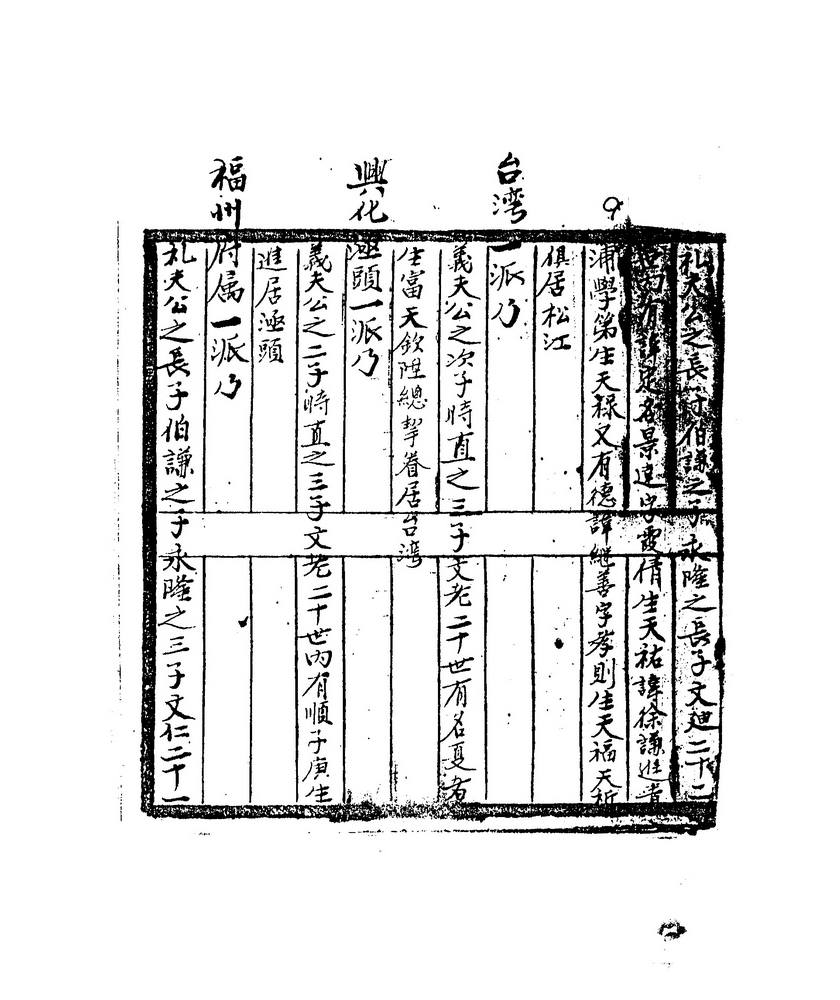 礼夫公之長子伯謙之子永隆之長子文廸二十二
名景達字霞倩生天祐諱徐謙進者
浦學第生天禄又有德諱継善字孝則生天福天祈
俱居松江
台湾一派乃
義夫公之次子時直之三子文老二十世有名夏者
生富天欽陞總挐眷居台湾
興化涵頭一派乃
義夫公之二子時直之三子文老二十世内有順子庚生
進居涵頭
福州府属一派乃
礼夫公之長子伯謙之子永隆之三子文仁二十一